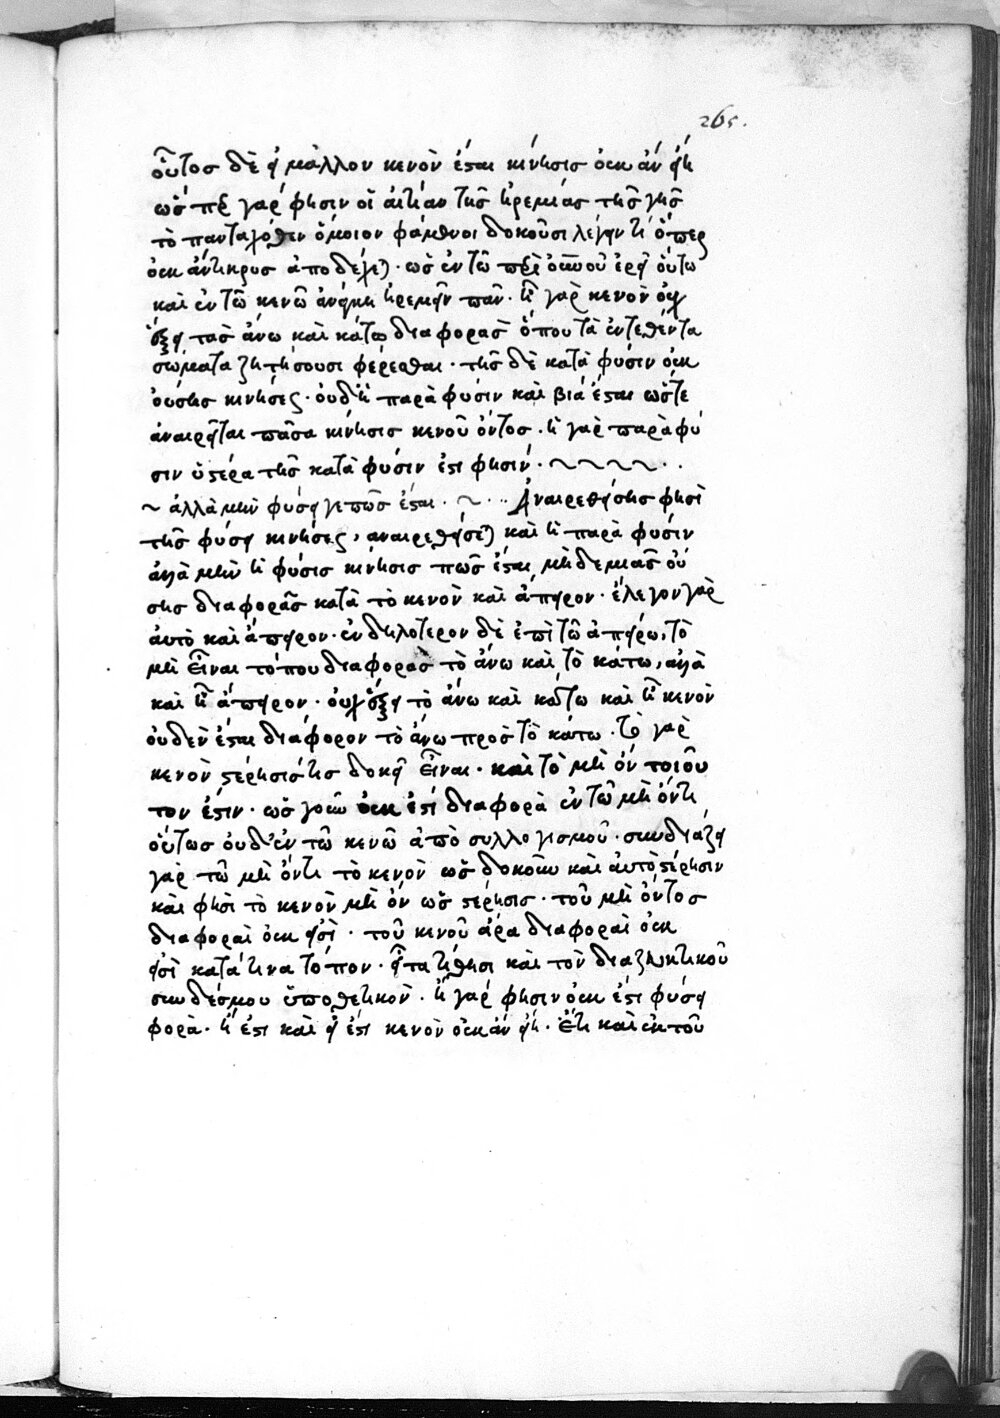 265.
οὗτος δὲ εἰ μάλλον κενὸν ἔσται κίνησις οὐκ ἂν εἴη
ὥσπερ γάρ φησιν οἱ αἰτίαν τῆς ἠρεμίας τῆς γῆς
τὸ πανταχόθεν ὅμοιον φάμενοι δοκοῦσι λέγειν τί ὅπερ
οὐκ ἄντικρυς ἀποδέχεται. ὡς ἐν τῶ περὶ οὐρανοῦ ἐρεῖ οὕτω
καὶ ἐν τῶ κενῶ ἀνάγκη ἠρεμεῖν πᾶν. ἧ γὰρ κενὸν οὐχ
ἕξει τὰς ἄνω καὶ κάτω διαφορὰς ὅπου τὰ ἐντεθέντα
σώματα ζητήσουσι φέρεσθαι. τῆς δὲ κατὰ φύσιν οὐκ
οὔσης κινήσεως. οὐδ' ἡ παρὰ φύσιν καὶ βία ἔσται ὥστε
ἀναιρεῖται πᾶσα κίνησις κενοῦ ὄντος. ἡ γὰρ παρὰ φύ
σιν ὑστέρα τῆς κατὰ φύσιν ἐστὶ φησίν.
ἀλλὰ μὴν φύσει γε πῶς ἔσται. Ἀναιρεθείσης φησὶ
τῆς φύσει κινήσεως, ἀναιρεθήσεται καὶ ἡ παρὰ φύσιν
ἀλλὰ μὴν ἡ φύσις κίνησις πῶς ἔσται μηδεμιᾶς οὔ
σης διαφορᾶς κατὰ τὸ κενὸν καὶ ἄπειρον. ἔλεγον γὰρ
αὐτὸ καὶ ἄπειρον. ἐνδηλότερον δὲ ἐπὶ τῶ ἀπείρω, τὸ
μὴ εἶναι τόπου διαφορὰς τὸ ἄνω καὶ τὸ κάτω, ἀλλὰ
καὶ ἧ ἄπειρον. οὐχ ἕξει τὸ ἄνω καὶ κάτω καὶ ἧ κενὸν
οὐδὲν ἔσται διάφορον τὸ ἄνω πρὸς τὸ κάτω. τὸ γὰρ
κενὸν στέρησίς τις δοκεῖ εἶναι. καὶ τὸ μὴ ὂν τοιοῦ
τον ἐστιν. ὡς γοῦν οὐκ ἐστὶ διαφορὰ ἐν τῶ μὴ ὄντι
οὕτως οὐδ' ἐν τῶ κενῶ ἀπὸ συλλογισμοῦ. συνδιάζει
γὰρ τῶ μὴ ὄντι τὸ κενὸν ὡς δοκοῦν καὶ αὐτὸ στέρησιν
καὶ φησὶ τὸ κενὸν μὴ ὂν ὡς στέρησις. τοῦ μὴ ὄντος
διαφοραὶ οὐκ εἰσὶ. τοῦ κενοῦ ἄρα διαφοραὶ οὐκ
εἰσὶ κατά τινα τόπον. εἶτα τίθησι καὶ τὸν διαζευκτικοῦ
συνδέσμου ὑποθετικὸν. ἢ γάρ φησιν οὐκ ἐστι φύσει
φορὰ. ἢ ἐστι καὶ εἰ ἐστι κενὸν οὐκ ἂν εἴη. ἔτι καὶ ἐκ τοῦ